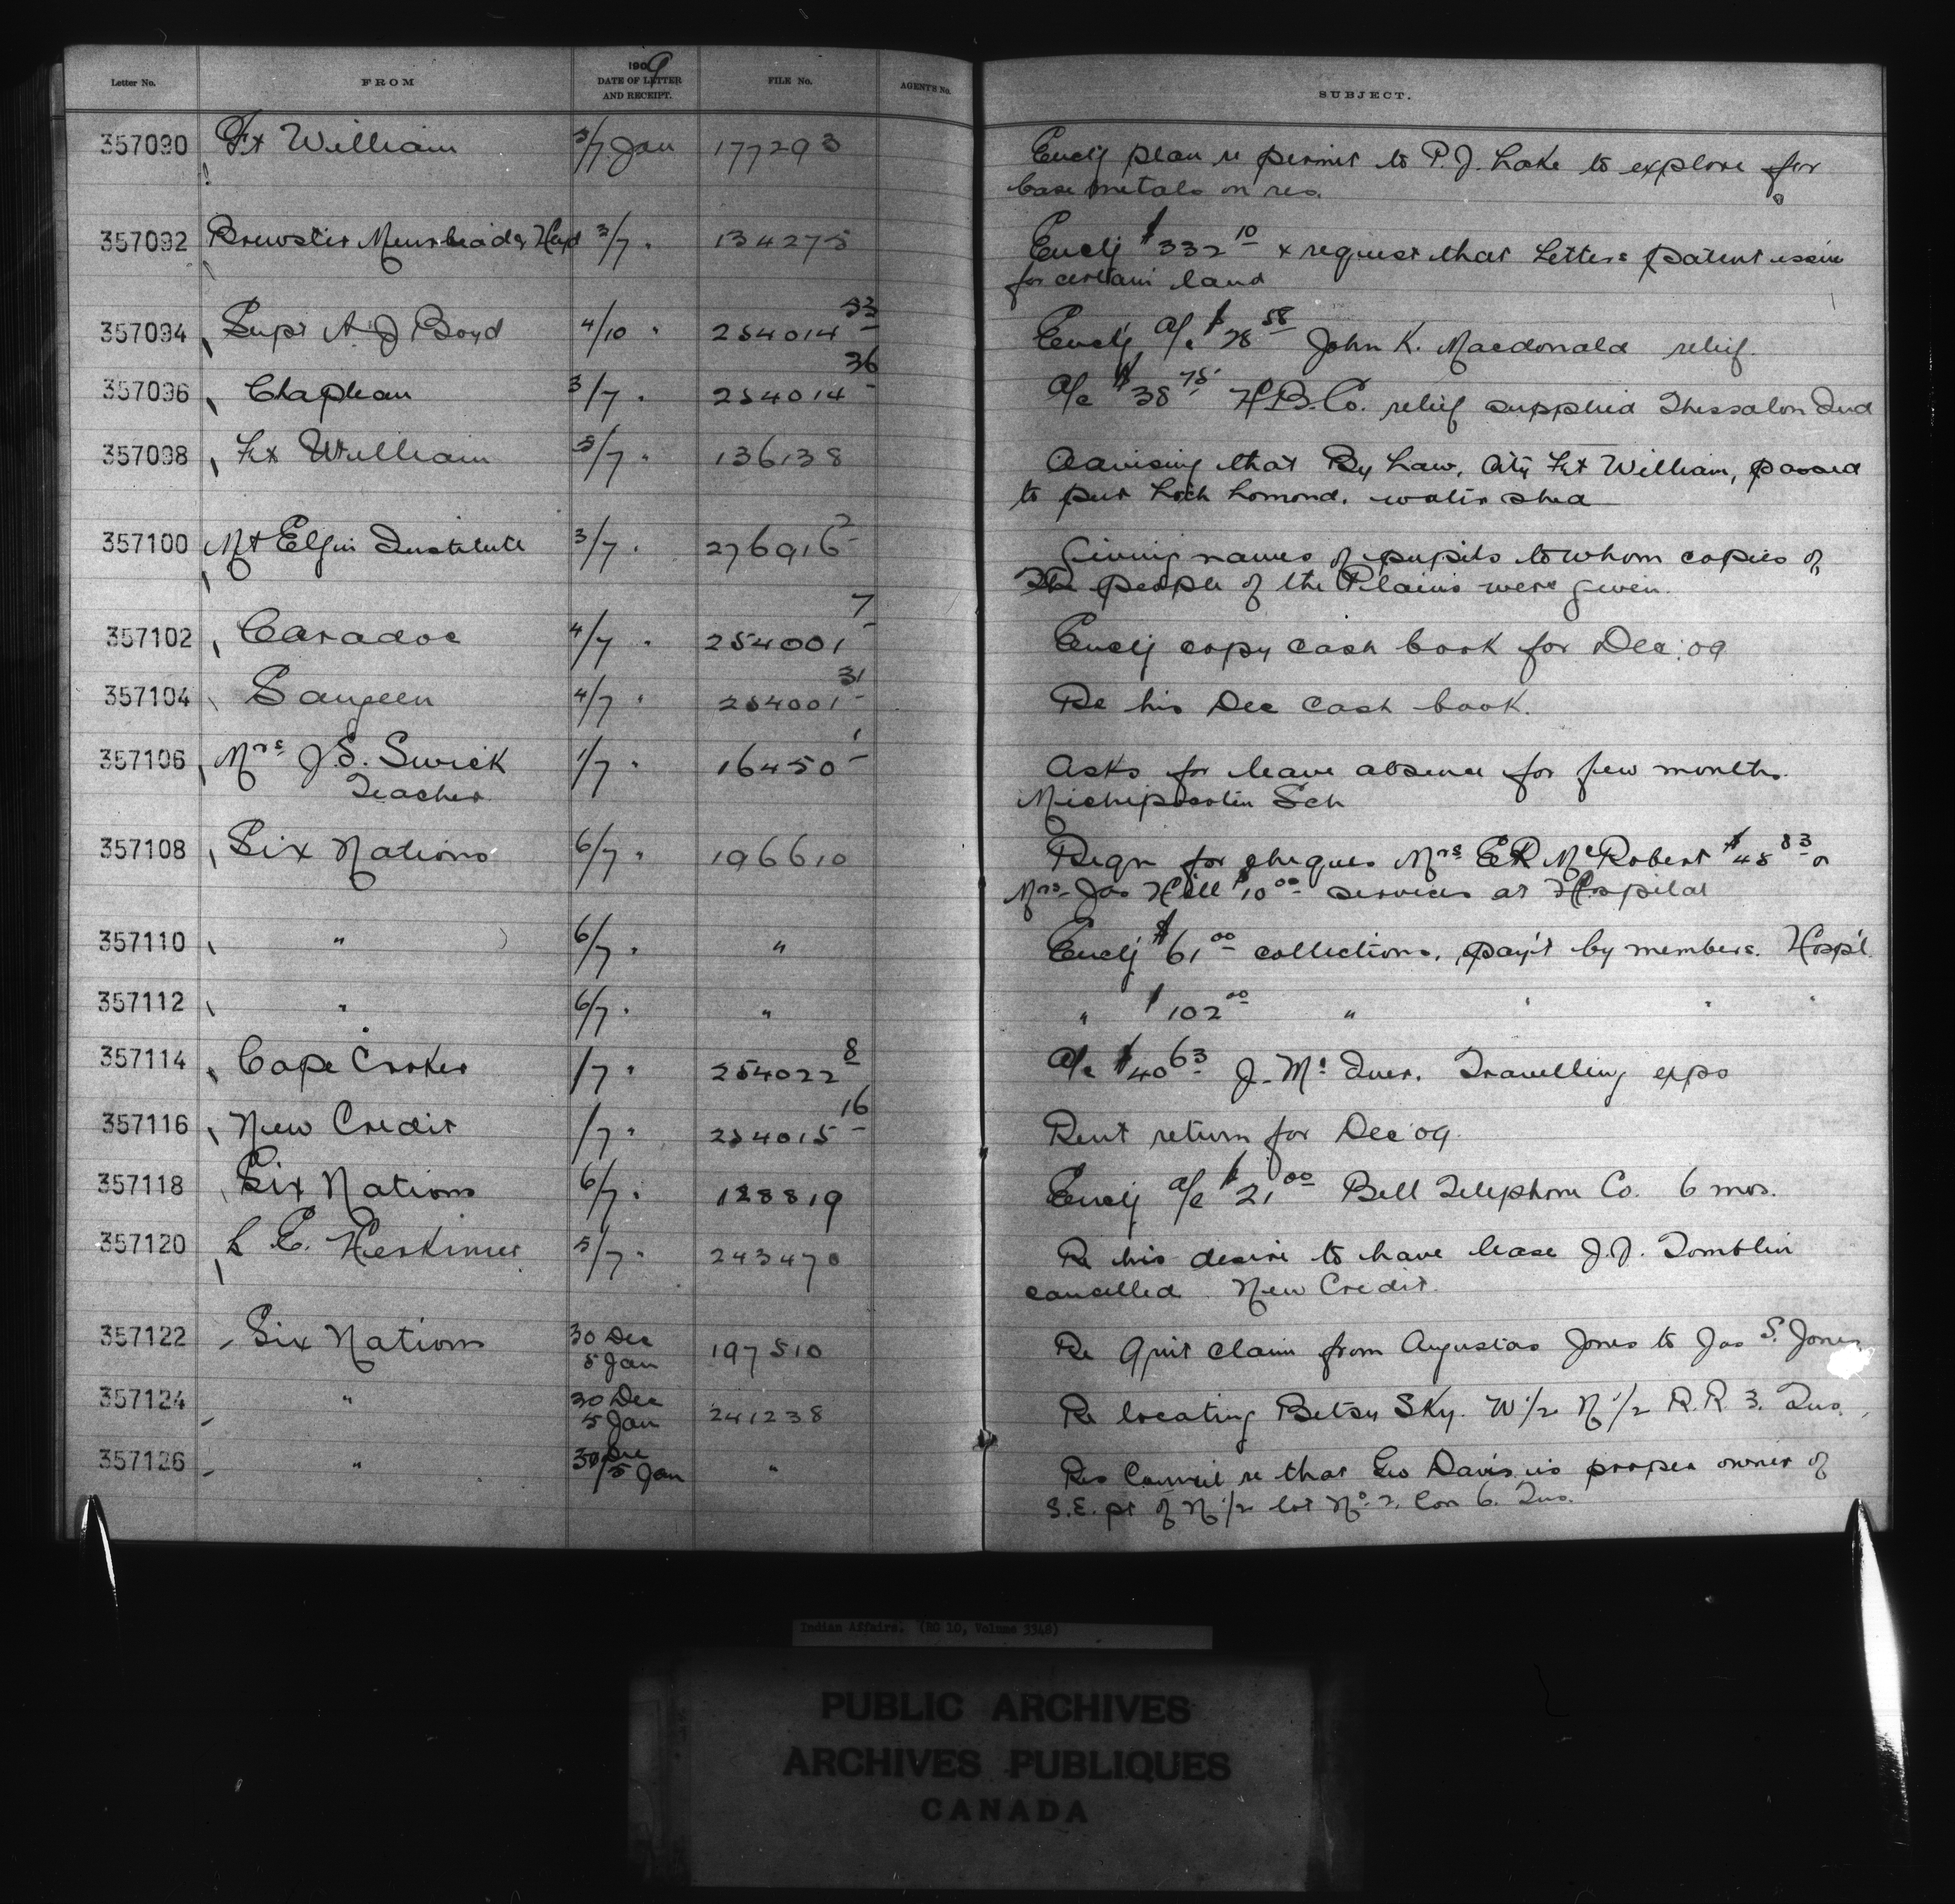 Letter No. FROM 1909 DATE OF LETTER AND RECEIPT. FILE No. AGENTS No. SUBJECT.
357090 Ft William 3/7 Jan 177293 Enclg plan re permit to P.J. Lake to explore for
base metals on res.
357092 Brewster Muirhead & Heyd 3/7 " 134275 Enclg $332 10 & request that Letters patent issue
for certain land
357094 Supt A. J Boyd 4/10 " 254014 33 Enclg a/c $28 58 John K. Macdonald relief.
357096 Chapleau 3/7 " 254014 36 a/c $38 75 H.B.Co. relief supplied Thessalon Ind
357098 Ft William 5/7 " 136138 Advising that By Law, City Ft William, passed
to put Loch Lomond, water shed
357100 Mt Elgin Institute 3/7 " 276916 2 Giving names of pupils to whom copies of
The people of the Plains were given.
357102 Caradoc 4/7 " 254001 7 Enclg copy cash book for Dec '09
357104 Saugeen 4/7 " 254001 31 Re his Dec cash book.
357106 Mrs J.S. Swick 1/7 " 16450 1 Asks for leave absence for few months.
Teacher Michipicotin Sch
357108 Six Nations 6/7 " 196610 Reqn for cheques Mrs E R McRobert $48 83 &
Mrs Jas Hill $10 00 services at Hospital
357110 " 6/7 " " Enclg $61 00 collections, pay't by members. Hosp'l
357112 " 6/7 " " " $102 00 " " " "
357114 Cape Croker /7 " 254022 8 a/c $40 63 J. McIver. Travelling exps
357116 New Credit /7 " 254015 16 Rent return for Dec '09.
357118 Six Nations 6/7 " 128819 Enclg a/c $21 00 Bell Telephone Co. 6 mos.
357120 L E. Herkimer 5/7 " 243470 Re his desire to have lease J.J. Tomblin
cancelled. New Credit.
357122 Six Nations 30 Dec 5 Jan 197510 Re Quit Claim from Augustas Jones to Jas S. Jones
357124 " 30 Dec 5 Jan 241238 Re locating Betsy Sky. W 1/2 N 1/2 R.R 3. Tus.
357126 " 30 Dec/5 Jan " Res Council re that Geo Davis is proper owner of
S.E. pt of N 1/2 lot No. 2, Con 6. Tus.
Indian Affairs. (RG 10, Volume 3348)
PUBLIC ARCHIVES
ARCHIVES PUBLIQUES
CANADA